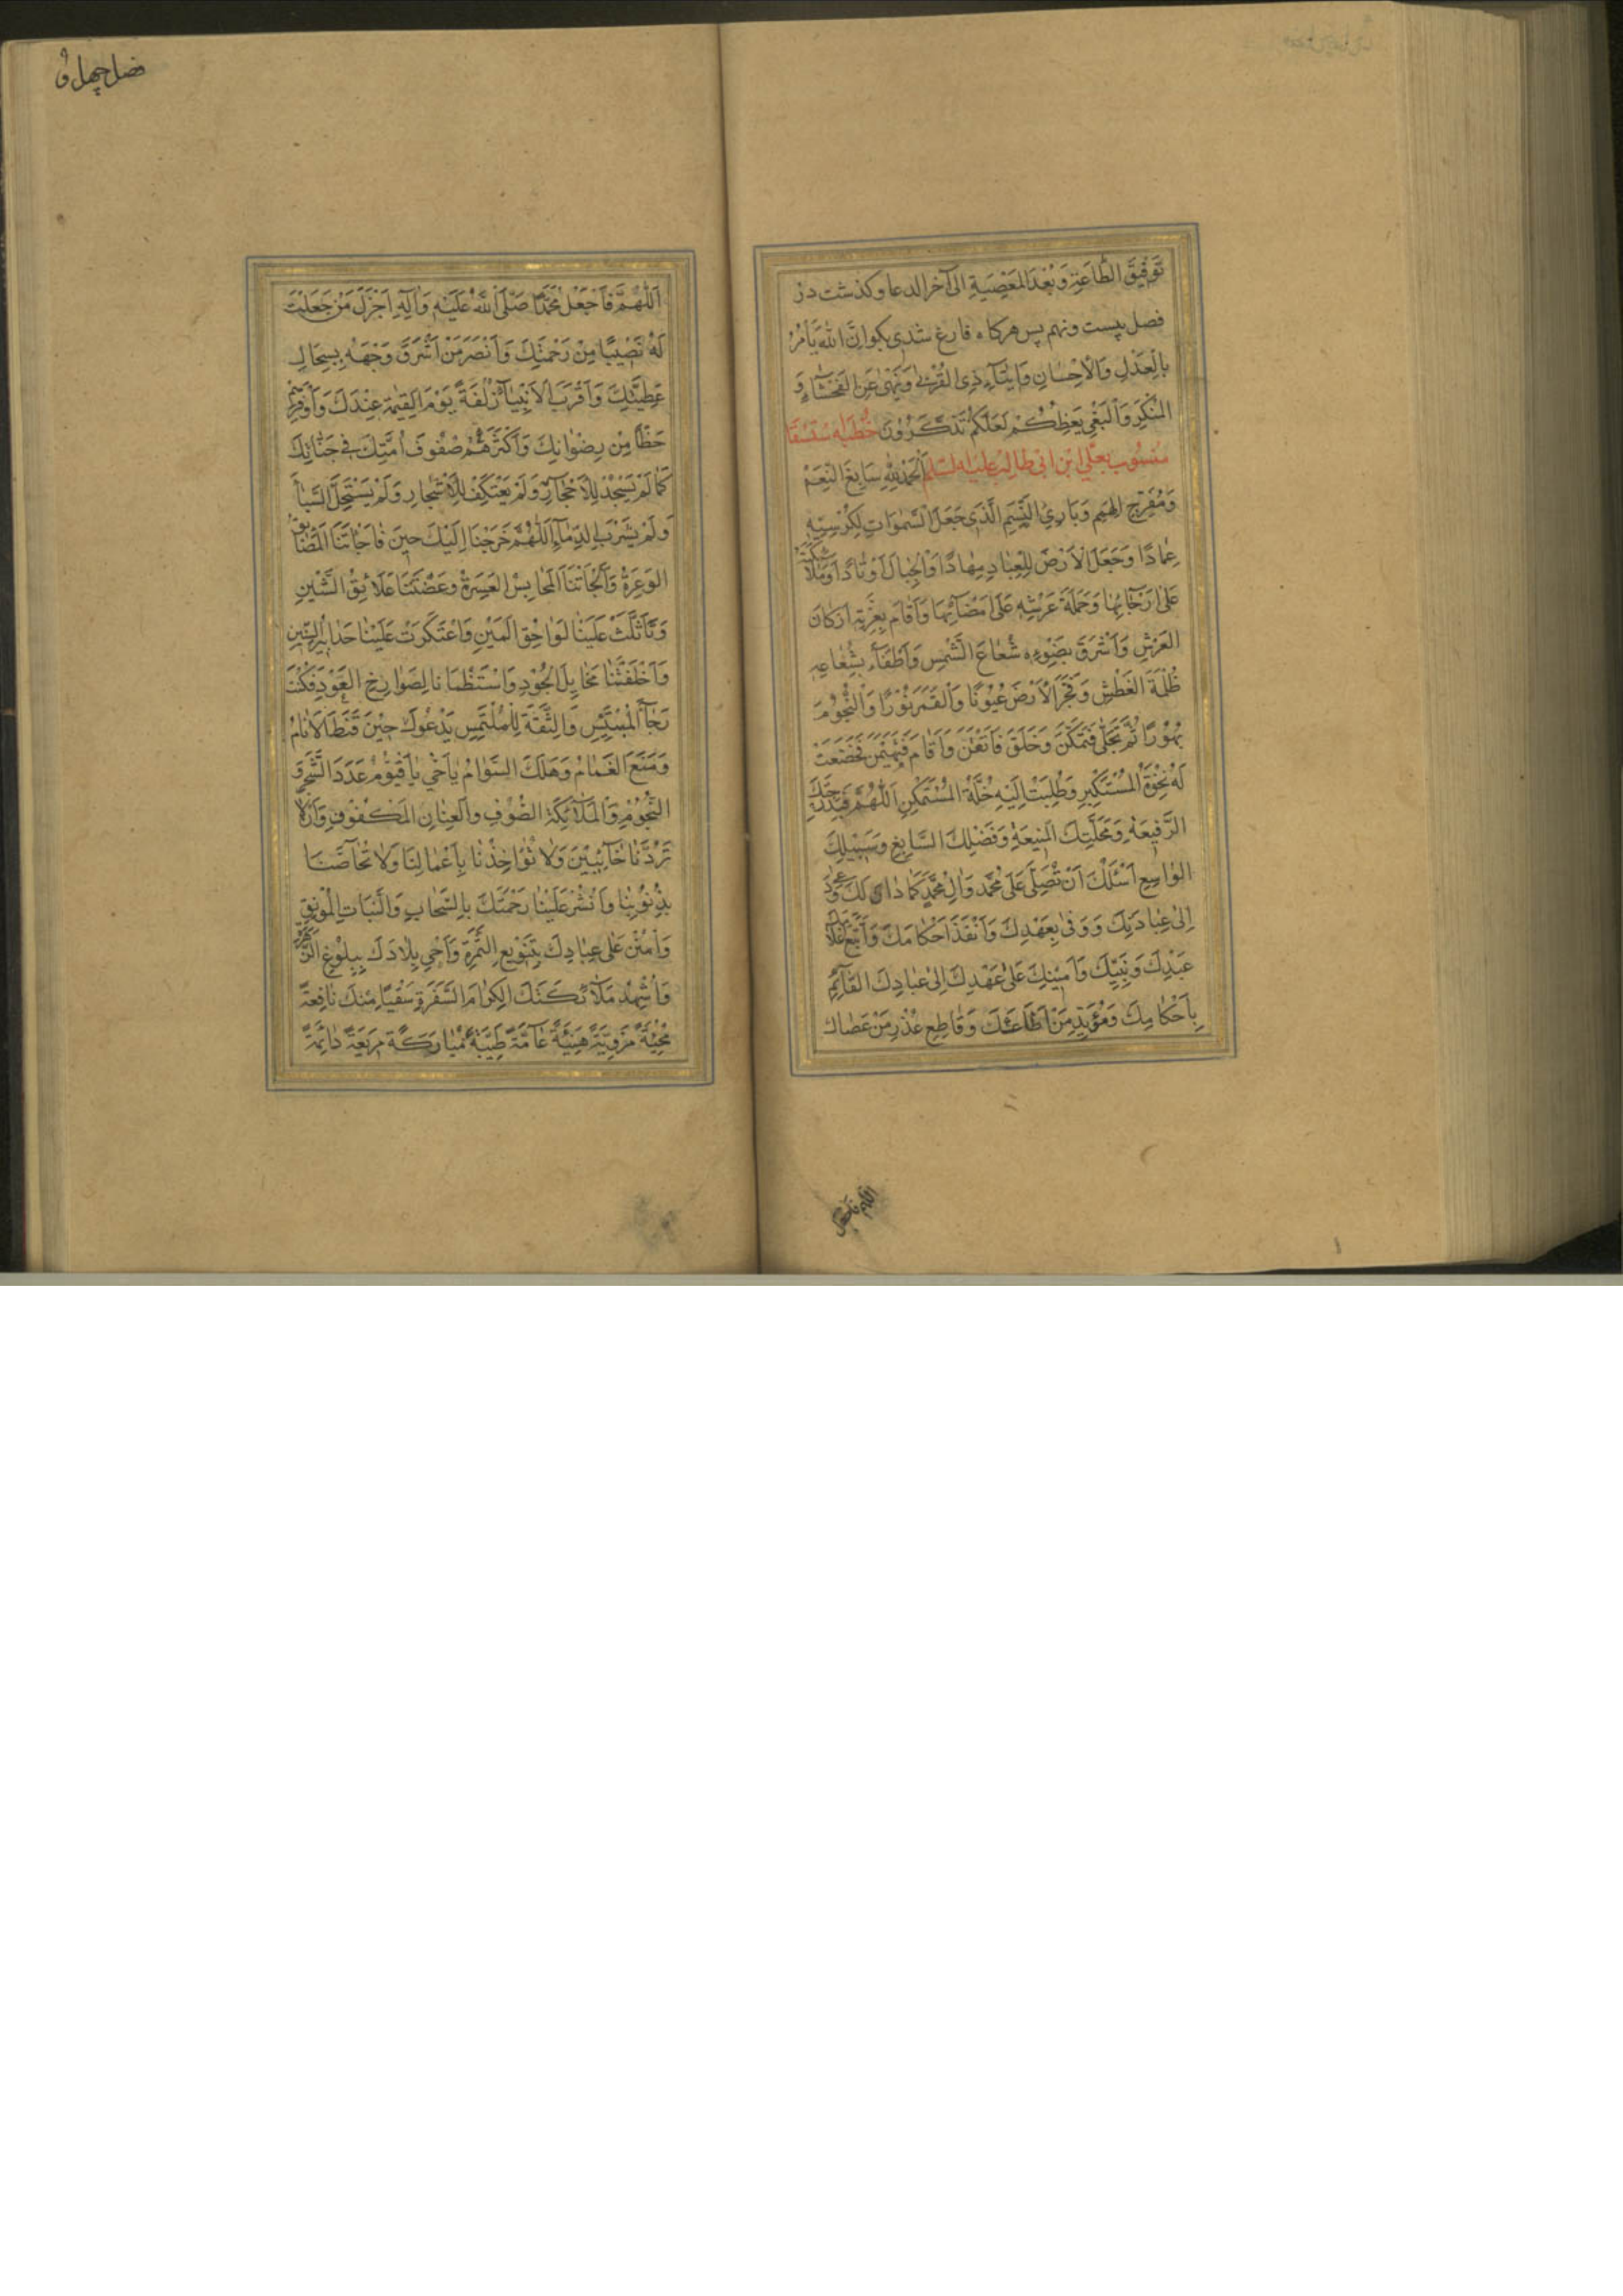 تَوْفِيقَ الطَّاعَةِ وَبُعْدَ الْمَعْصِيَةِ الی آخر الدعا و کذشت در
فصل بیست ونهم پس هرکاه فارغ شدی بکو اِنَّ اللّٰهَ يَأْمُرُ
بِالْعَدْلِ وَالْاِحْسَانِ وَاِيتَآءِ ذِي الْقُرْبٰى وَيَنْهٰى عَنِ الْفَحْشَآءِ وَ
الْمُنْكَرِ وَالْبَغْيِ يَعِظُكُمْ لَعَلَّكُمْ تَذَكَّرُونَ خُطْبَهٔ سْتِسْقَا
مَنْسُوب بِعَلِيّ ابْنِ ابي طالِبْ عَلَيْهِ السَّلام اَلْحَمْدُ لِلّٰهِ سَابِغِ النِّعَمْ
وَمُفَرِّجِ الْهِمَمِ وَبَارِئِ النَّسِمِ الَّذِي جَعَلَ السَّمٰوَاتِ لِكُرْسِيِّهِ
عِمَادًا وَجَعَلَ الْاَرْضَ لِلْعِبَادِ مِهَادًا وَالْجِبَالَ اَوْتَادًا وَمَلَآئِكَتَهُ
عَلٰى اَرْجَآئِهَا وَحَمَلَةَ عَرْشِهِ عَلٰى اَمْضَآئِهَا وَاَقَامَ بِعِزَّتِهِ اَرْكَانَ
الْعَرْشِ وَاَشْرَقَ بِضَوْءِهِ شُعَاعَ الشَّمْسِ وَاَطْفَأَ بِشُعَاعِهِ
ظُلْمَةَ الْغَطْشِ وَفَجَّرَ الْاَرْضَ عُيُونًا وَالْقَمَرَ نُوْرًا وَالنُّجُوْمَ
بُهُوْرًا ثُمَّ تَجَلّٰى فَتَمَكَّنَ وَخَلَقَ فَاَتْقَنَ وَاَقَامَ فَتَهَيْمَنَ فَخَضَعَتْ
لَهُ نَخْوَةُ الْمُسْتَكْبِرِ وَطُلِبَتْ اِلَيْهِ خُلَّةُ الْمُتَمَكِّنِ اَللّٰهُمَّ فَبِدَرَجَتِكَ
الرَّفِيعَةِ وَمَحَلَّتِكَ الْمَنِيعَةِ وَفَضْلِكَ السَّابِغِ وَسَبِيْلِكَ
الْوَاسِعِ اَسْئَلُكَ اَنْ تُصَلِّيَ عَلٰى مُحَمَّدٍ وَاٰلِ مُحَمَّدٍ كَمَا دَانَ لَكَ وَدَعٰى
اِلٰى عِبَادَتِكَ وَوَفٰى بِعَهْدِكَ وَاَنْفَذَ اَحْكَامَكَ وَاتَّبَعَ اَعْلَامَكَ
عَبْدِكَ وَنَبِيِّكَ وَاَمِيْنِكَ عَلٰى عَهْدِكَ اِلٰى عِبَادِكَ الْقَآئِمِ
بِاَحْكَامِكَ وَمُؤَيِّدِ مَنْ اَطَاعَكَ وَقَاطِعِ عُذْرِ مَنْ عَصَاكَ
اللّٰهم فاجعل
فصل چهل و
اَللّٰهُمَّ فَاجْعَلْ مُحَمَّدًا صَلَّى اللّٰهُ عَلَيْهِ وَاٰلِهِ اَجْزَلَ مَنْ جَعَلْتَ
لَهُ نَصِيْبًا مِنْ رَحْمَتِكَ وَاَنْضَرَ مَنْ اَشْرَقَ وَجْهَهُ بِسِجَالِ
عَطِيَّتِكَ وَاَقْرَبَ الْاَنْبِيَآءِ زُلْفَةً يَوْمَ الْقِيٰمَةِ عِنْدَكَ وَاَوْفَرَهُمْ
حَظًّا مِنْ رِضْوَانِكَ وَاَكْثَرَهُمْ صُفُوفَ اُمَّتِكَ فِي جَنَّاتِكَ
كَمَا لَمْ يَسْجُدْ لِلْاَحْجَارِ وَلَمْ يَعْتَكِفْ لِلْاَشْجَارِ وَلَمْ يَسْتَحِلَّ السِّبَآءَ
وَلَمْ يَشْرَبِ الدِّمَآءَ اَللّٰهُمَّ خَرَجْنَا اِلَيْكَ حِيْنَ فَاجَأَتْنَا الْمَضَايِقُ
الْوَعِرَةُ وَاَلْجَأَتْنَا الْمَحَابِسُ الْعَسِرَةُ وَعَضَّتْنَا عَلَائِقُ الشَّيْنِ
وَتَاَثَّلَتْ عَلَيْنَا لَوَاحِقُ الْمَيْنِ وَاعْتَكَرَتْ عَلَيْنَا حَدَابِيرُ السِّنِينَ
وَاَخْلَفَتْنَا مَخَايِلُ الْجُوْدِ وَاسْتَظْمَانَا لِصَوَارِخِ الْعَوْدِ فَكُنْتَ
رَجَآءَ الْمُبْتَئِسِ وَالثِّقَةَ لِلْمُلْتَمِسِ يَدْعُوْكَ حِيْنَ قَنَطَ الْاَنَامُ
وَمَنَعَ الْغَمَامُ وَهَلَكَ السَّوَامُ يَا حَيُّ يَا قَيُّوْمُ عَدَدَ الشَّجَرِ وَ
النُّجُوْمِ وَالْمَلَآئِكَةِ الصُّفُوْفِ وَالْعِنَانِ الْمَكْفُوْفِ وَاَنْ لَا
تَرُدَّنَا خَآئِبِيْنَ وَلَا تُؤَاخِذْنَا بِاَعْمَالِنَا وَلَا تُحَاصَّنَا
بِذُنُوْبِنَا وَانْشُرْ عَلَيْنَا رَحْمَتَكَ بِالسَّحَابِ وَالنَّبَاتِ الْمُوْنِقِ
وَامْنُنْ عَلٰى عِبَادِكَ بِتَنْوِيعِ الثَّمَرَةِ وَاَحْيِ بِلَادَكَ بِبِلُوْغِ الزَّهْرَةِ
وَاَشْهِدْ مَلَآئِكَتَكَ الْكِرَامَ السَّفَرَةَ سَقْيًا مِنْكَ نَافِعَةً
مُحْيِيَةً مُرْوِيَةً هَنِيئَةً عَآمَّةً طَيِّبَةً مُبَارَكَةً مَرِيعَةً دَائِمَةً